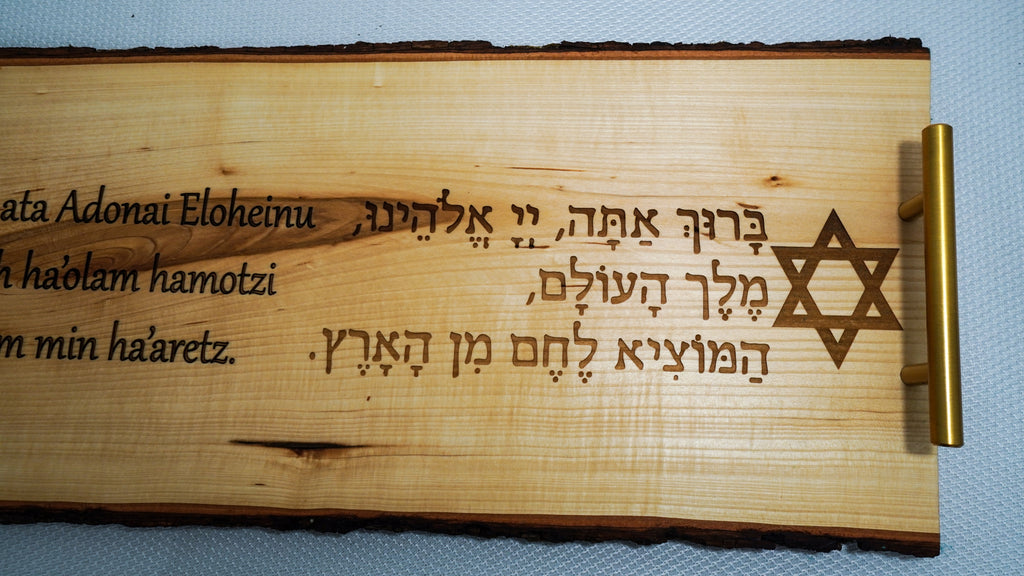 ata Adonai Eloheinu
ha'olam hamotzi
min ha'aretz.
בָּרוּךְ אַתָּה, יְיָ אֱלֹהֵינוּ,
מֶלֶךְ הָעוֹלָם,
הַמּוֹצִיא לֶחֶם מִן הָאָרֶץ.